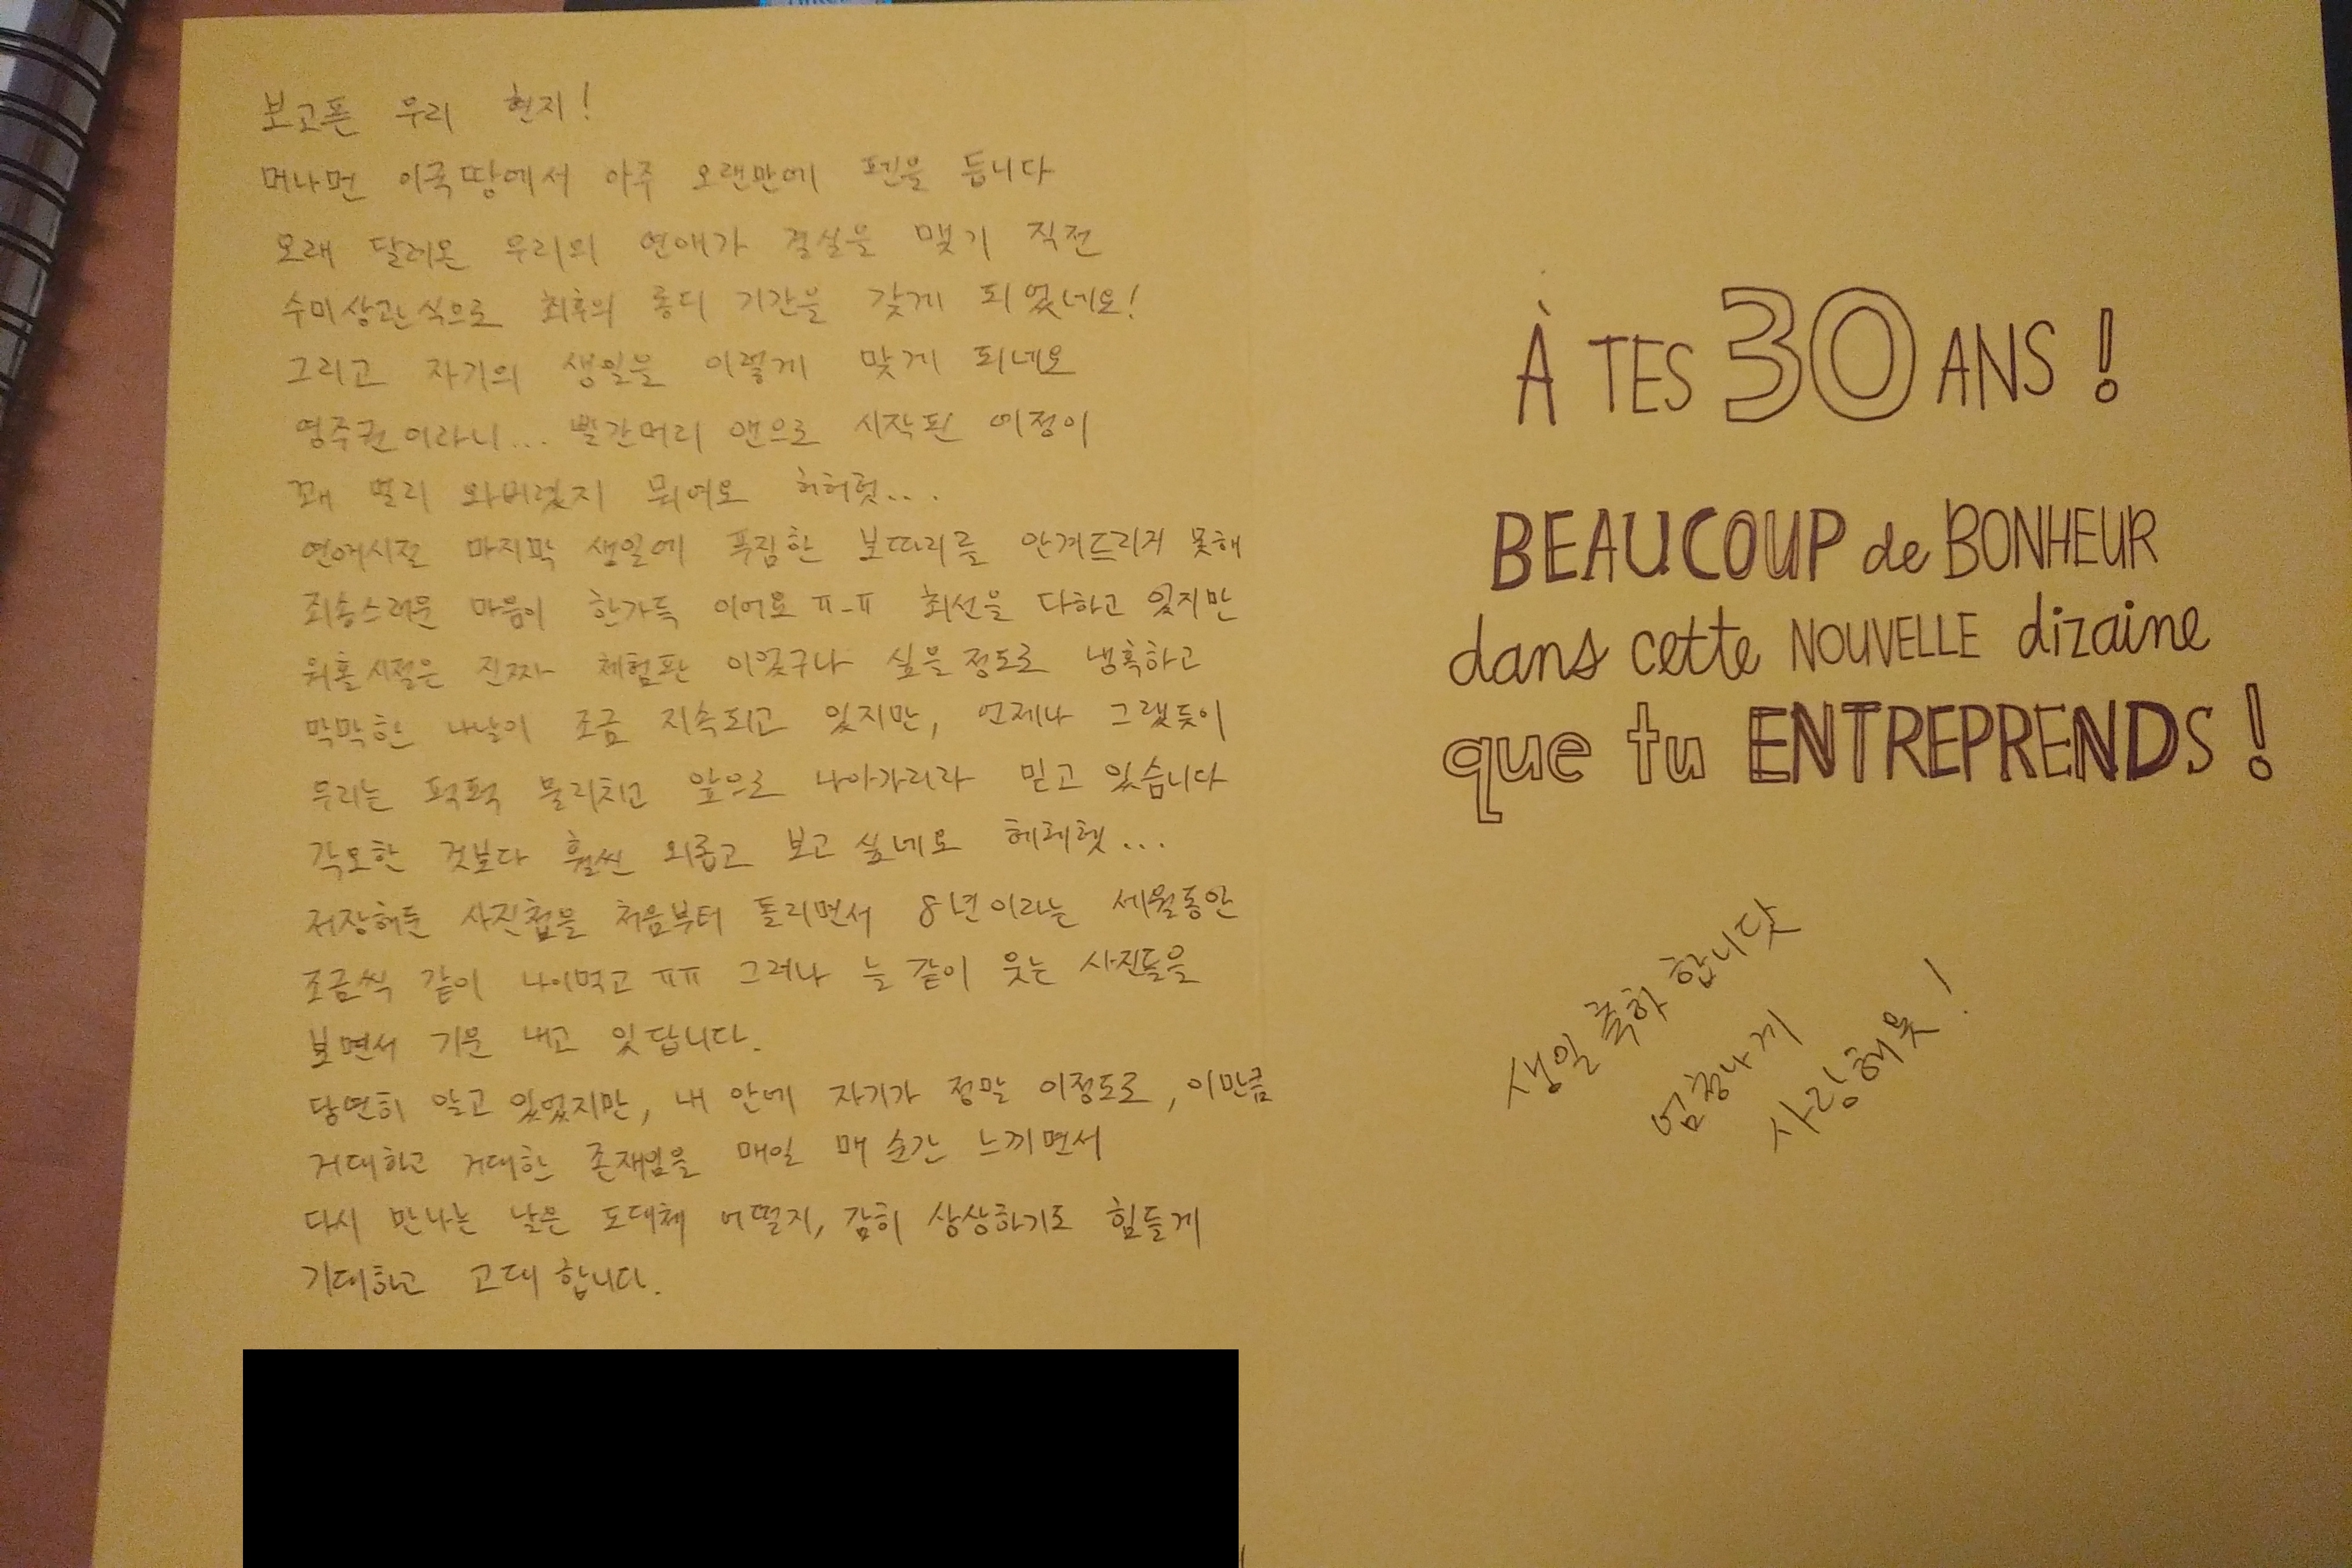 보고픈 우리 현지!
머나먼 이국땅에서 아주 오랜만에 펜을 듭니다
오래 달려온 우리의 연애가 결실을 맺기 직전
수미상관식으로 최후의 롱디 기간을 갖게 되었네요!
그리고 자기의 생일을 이렇게 맞게 되네요
영주권이라니... 빨간머리 앤으로 시작된 여정이
꽤 멀리 와버렸지 뭐여요 허허헛...
연애시절 마지막 생일에 푸짐한 보따리를 안겨드리지 못해
죄송스러운 마음이 한가득 이어요 ㅠ-ㅠ 최선을 다하고 있지만
워홀시절은 진짜 체험판 이었구나 싶을정도로 냉혹하고
막막한 나날이 조금 지속되고 있지만, 언제나 그랬듯이
우리는 퍽퍽 물리치고 앞으로 나아가리라 믿고 있습니다
각오한 것보다 훨씬 외롭고 보고싶네요 헤헤헷...
저장해둔 사진첩을 처음부터 돌리면서 8년이라는 세월동안
조금씩 같이 나이먹고 ㅠㅠ 그러나 늘 같이 웃는 사진들을
보면서 기운 내고 있답니다.
당연히 알고 있었지만, 내 안에 자기가 정말 이정도로, 이만큼
거대하고 거대한 존재임을 매일 매 순간 느끼면서
다시 만나는 날은 도대체 어떨지, 감히 상상하기도 힘들게
기대하고 고대합니다.
À TES 30 ANS !
BEAUCOUP de BONHEUR
dans cette NOUVELLE dizaine
que tu ENTREPRENDS !
생일 축하 합니닷
엄청나게
사랑해욧!